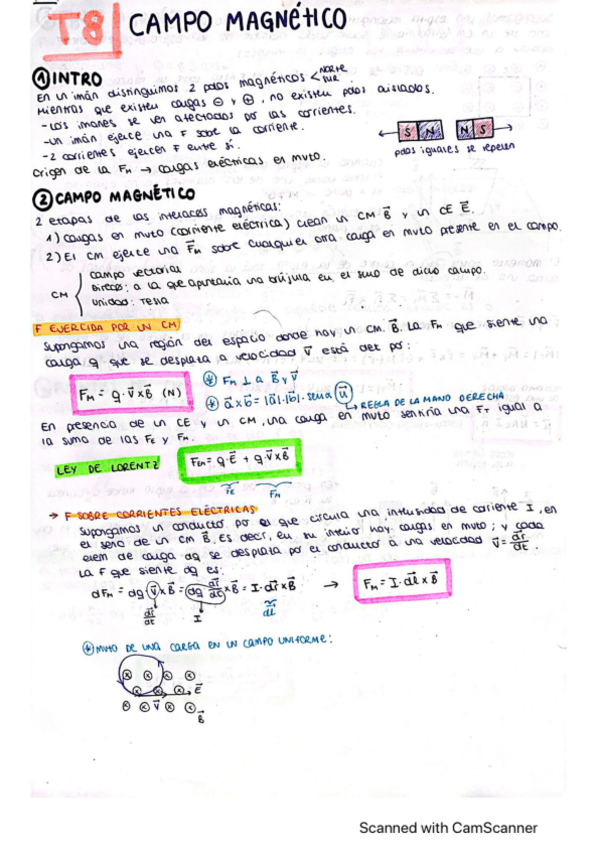 T8| CAMPO MAGNÉTICO
① INTRO
En un imán distinguimos 2 polos magnéticos < NORTE SUR
Mientras que existen cargas ⊖ y ⊕, no existen polos aislados.
- Los imanes se ven afectados por las corrientes.
- un imán ejerce una F sobre la corriente.
- 2 corrientes ejercen F entre sí.
S N N S
polos iguales se repelen
Origen de la Fм → cargas eléctricas en mvto.
② CAMPO MAGNÉTICO
2 etapas de las interacc magnéticas:
1) Cargas en mvto (corriente eléctrica) crean un CM B⃗ y un CE E⃗.
2) El CM ejerce una F⃗м sobre cualquier otra carga en mvto presente en el campo.
CM { campo vectorial
Direcc: a la que apuntaría una brújula en el seno de dicho campo.
Unidad: Tesla
F EJERCIDA POR UN CM
Supongamos una región del espacio donde hay un CM. B⃗. La Fм que siente una
carga q que se desplaza a velocidad V⃗ está det por:
Fм = q · V⃗ x B⃗ (N)
* Fм ⊥ a B⃗ y V⃗
* a⃗ x b⃗ = |a⃗|·|b⃗|· senα (u⃗)
↳ REGLA DE LA MANO DERECHA
En presencia de un CE y un CM, una carga en mvto sentiría una Fт igual a
la suma de las Fᴇ y Fм.
LEY DE LORENTZ
Fᴇм = q·E⃗ + q·V⃗xB⃗
Fᴇ Fм
→ F SOBRE CORRIENTES ELÉCTRICAS
Supongamos un conductor por el que circula una intensidad de corriente I, en
el seno de un CM B⃗. Es decir, en su interior hay cargas en mvto; y cada
elem de carga dq se desplaza por el conductor a una velocidad V⃗ = dr⃗/dt.
La F que siente dq es:
dFм = dq V⃗ x B⃗ = dq dr⃗/dt x B⃗ = I·dr⃗ x B⃗ → Fм = I·dl⃗ x B⃗
dr⃗/dt I dl⃗
* MVTO DE UNA CARGA EN UN CAMPO UNIFORME:
E⃗
V⃗
B⃗
Scanned with CamScanner